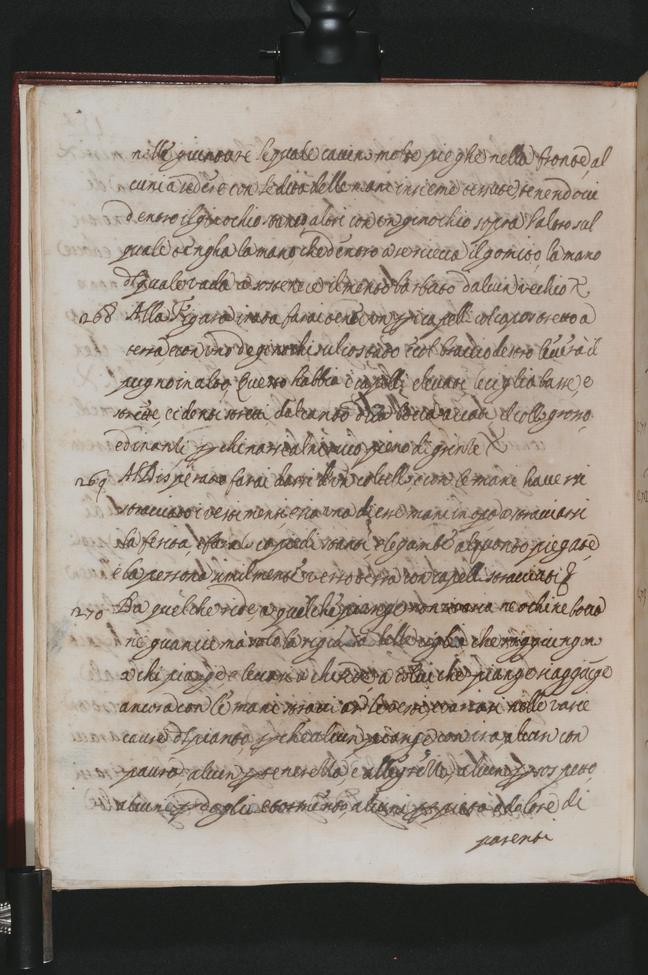 nelle giunture le quale cavino molte pieghe nella fronte, al
cuni a sedere con le dita delle mani insieme tenendovi
dentro il ginochio stanco, altri con un ginochio sopra l'altro sul
quale tengha la mano, che dentro a se riceva il gomito, la mano
del quale vada a sostenere il mento barbuto d'alcun vecchio
268 Alla figura irata farai tenere uno per i capelli col capo a
terra, con uno de ginochi sul costado e col braccio destro levare il
pugno in alto, questo habbia i capelli elevati le ciglia basse, e
strette, e i denti stretti da canto della bocca il collo grosso,
e dinanti per chinarse al nemico pieno di grinze
269 Al Disperato farai darsi d'un coltello e con le mani haversi
stracciato i vestimenti e sia una di esse mani in opera a stracciarsi
la ferita, e farai lo co piedi stanti e le gambe alquanto piegate
e la persona similmente verso terra con capelli stracciati
270 Da quel che ride, a quel che piange non si varia ne ochi ne bocca
ne guancie ma solo la rigidità delle ciglia che s'aggiungon
a chi piange e levansi a chi ride, a colui che piange s'aggiunge
ancora con le mani stracciar le veste nelle varie
cause del pianto, perche alcun piange con ira, alcun con
paura, alcuni per tenerezza e allegrezza, alcuni per sospetto
alcuni per doglie e tormento, alcuni per pietà e dolore di
parenti